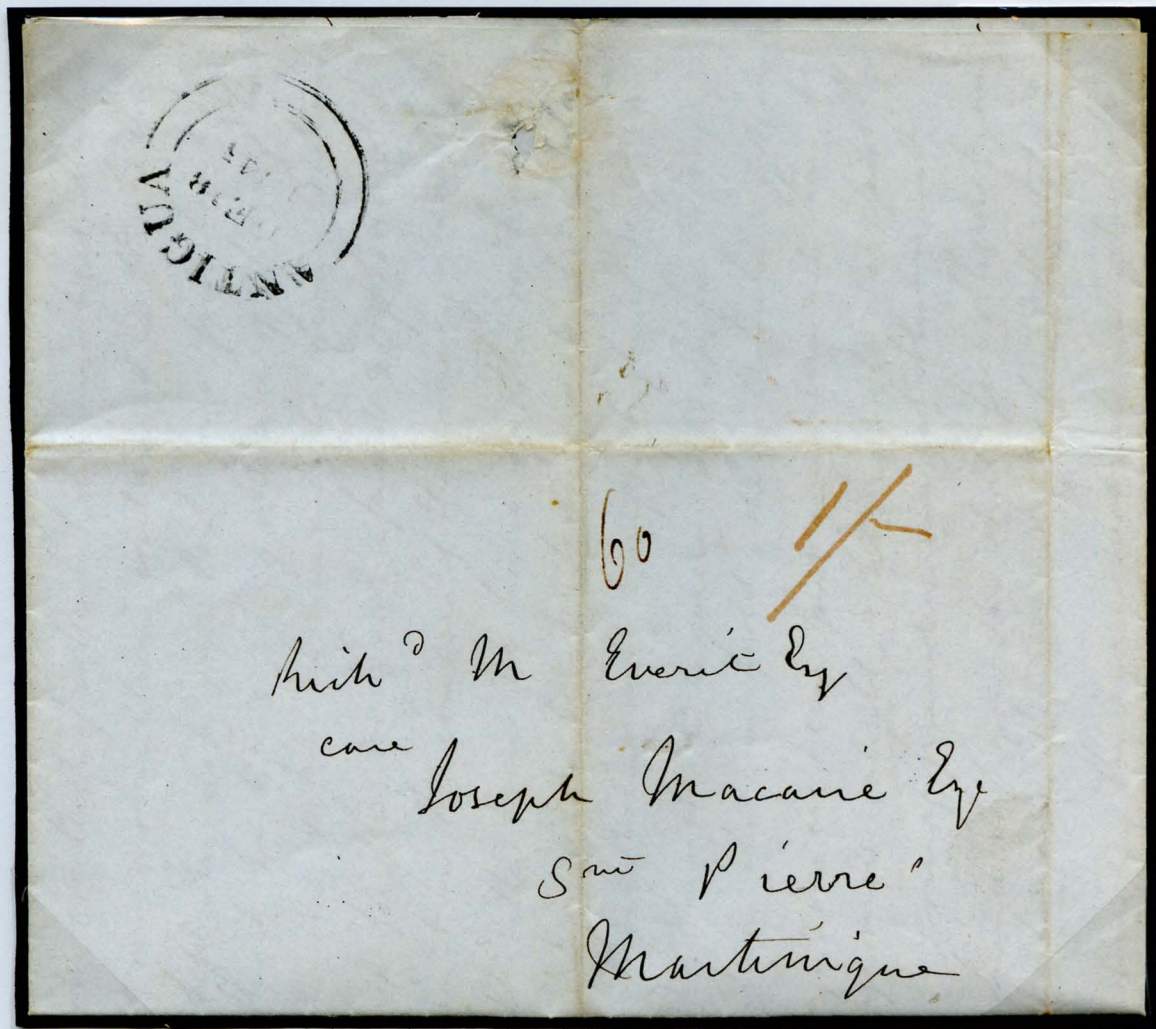 ANTIGUA
60 1/-
Rich^d M Everit Esq
care
Joseph Macarie Esqe
S^nt Pierre
Martinique